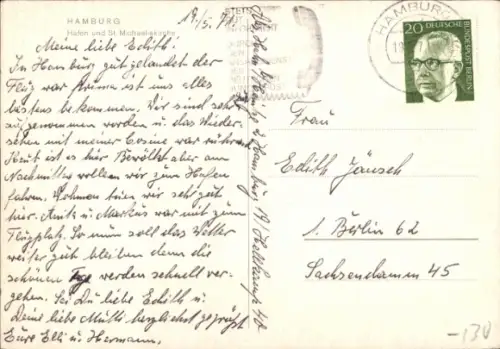 HAMBURG
Hafen und St. Michaeliskirche
19/5. 71.
Meine liebe Edith!
In Hamburg gut gelandet der
Flug war Prima ist uns alles
bestens bekommen. Wir sind sehr
aufgenommen worden u. das Wieder-
sehen mit meiner Cosine war rührend
Heut ist es hier Bevölkst aber am
Nachmittag wollen wir zum Hafen
fahren. Wohnen tuen wir sehr gut
hier. Anita u. Markus war mit zum
Flugplatz. So nun soll das Wetter
weiter gut bleiben denn die
schönen Tage werden schnell ver-
gehen. Sei Du liebe Edith u.
Deine liebe Mutti herzlichst gegrüßt
Eure Elli u. Hermann.
2 Hamburg 19/
40
HAMBURG
20
DEUTSCHE BUNDESPOST BERLIN
Frau
Edith Jänsch
1 Berlin 62
Sachsendamm 45
-130